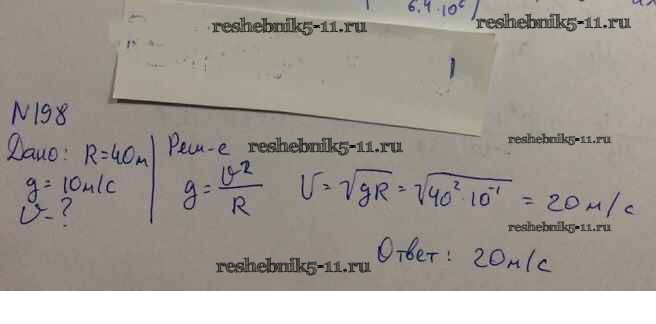 6.4·10⁶
reshebnik5-11.ru
reshebnik5-11.ru
N198
Дано: R=40м
g=10м/с
υ-?
Реш-е reshebnik5-11.ru
g=υ²/R υ=√gR=√40²·10⁻¹ = 20м/с
reshebnik5-11.ru
Ответ: 20м/с
reshebnik5-11.ru